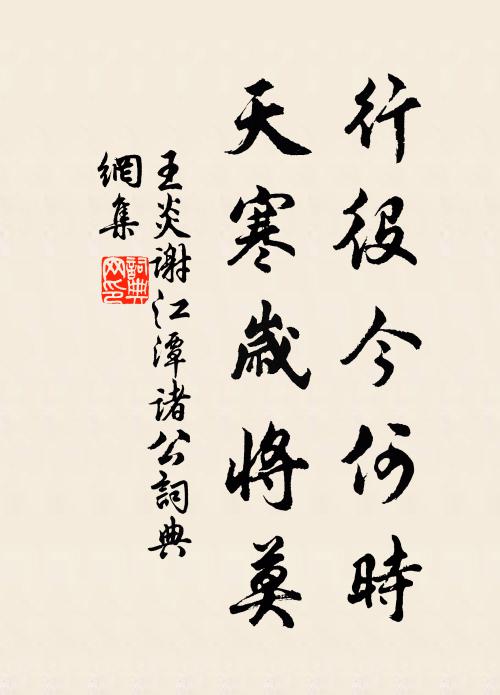 行役今何時
天寒歲將莫
王炎謝江潭諸公詞典
網集
詞典網印